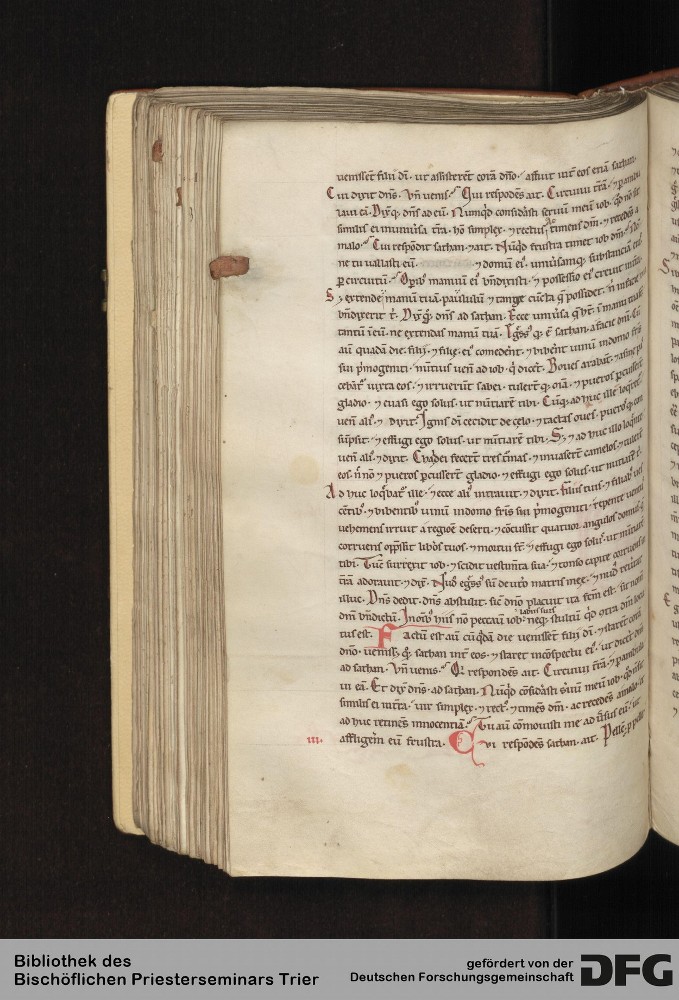 uenissēt filii dī · ut assisterēt corā dn̄o · affuit int̄ eos etiā sathan.
Cui dixit dn̄s. Vn̄ uenis · Qui respōdēs ait. Circuiui t̄rā · ⁊ p̄ambu
laui eā. Dix̄q; dn̄s ad eū. Nūquid considasti seruū meū iob · qd̄ nō sit
similis ei in uniūsa t̄rā · hō simplex · ⁊ rectus ac timens dm̄ · ⁊ recedēs a
malo · Cui respōdit sathan · ⁊ ait. Nūqd frustra timet iob dm̄ ·
ne tu uallasti eū · ⁊ domū ei · uniūsamq; substanciā
p circuitū · Op̄ib manuū ei bn̄dixisti · ⁊ possessio ei creuit
S; extende manū tuā paululū ⁊ tange cūcta q̄ possidet · n̄ in faciē
bn̄dixerit t̄ · Dix̄q; dn̄s ad sathan. Ecce uniūsa q̄ h̄t ·
tantū in eū · ne extendas manū tuā. Eḡssq; ē sathan · a facie dn̄i. Cū
aū quadā die · filij · ⁊ filię ei comedent · ⁊ bibent uinū in domo fr̄is
sui p̄mogeniti · nūtius uen̄ ad iob · q̄ dicēt. Boues arabāt · ⁊ asine
cebāt iuxta eos · ⁊ irruerūt sabei · tulerūt q; oīa · ⁊ pueros pcusserūt
gladio · ⁊ euasi ego solus · ut nūtiarē tibi. Cūq; ad huc ille loq̄ret
uen̄ ali · ⁊ dixit. Ignis dī cecidit de celo · ⁊ tactas oues · pueros q; con
sūpsit · ⁊ effugi ego solus · ut nūtiarē tibi. S; ⁊ ad huc illo loq̄nte
uen̄ ali · ⁊ dixit. Chaldei fecerūt tres t̄mas · ⁊ inuaserūt camelos ⁊ tulerūt
eos · n̄ nō ⁊ pueros pcusserūt gladio · ⁊ effugi ego solus · ut nūtiarē t̄
Ad huc loq̄bat ille · ⁊ ecce ali intrauit · ⁊ dixit. Filiis tuis · ⁊ filiab
cētib · ⁊ bibentib uinū in domo fr̄is sui p̄mogeniti · repente uentus
uehemens irruit a regiōe deserti · ⁊ cōcussit quatuor angulos domus q̄
corruens opp̄ssit libōs tuos · ⁊ mortui sūt ⁊ effugi ego solus · ut nūtiarē
tibi. Tūc surrexit iob · ⁊ scidit uestim̄ta sua · ⁊ tonso capite corruens
t̄rā adorauit · ⁊ dix̄. Nud eḡssus sū de utō matris meę · ⁊ nud
illuc. Dn̄s dedit · dn̄s abstulit · sic dn̄o placuit ita fcm̄ est · sit nom̄
dn̄i bn̄dictū. In om̄ib hiis nō peccauit iob labiis suis neq; stultū qd̄
tus est. Factū est aū cū q̄dā die uenissēt filii dī · ⁊ starēt corā
dn̄o · uenissz q; sathan int̄ eos · ⁊ staret in cōspectu ei · ut dicēt dn̄s
ad sathan. Vn̄ uenis · Qi respondēs ait. Circuiui t̄rā · ⁊ pambulaui
in eā. Et dix̄ dn̄s · ad sathan. Nūqd cōsidasti suū meū iob · qd̄ nō sit
similis ei in t̄ra · uir simplex · ⁊ rect · ⁊ timēs dm̄ · ac recedēs a malo ·
ad huc retinēs innocentiā. Tu aū cōmouisti me ad ūsus eū · ut
III. affligerē eū frustra. Cui respōdēs sathan · ait. Pellē p pelle
Bibliothek des
Bischöflichen Priesterseminars Trier
gefördert von der
Deutschen Forschungsgemeinschaft
DFG